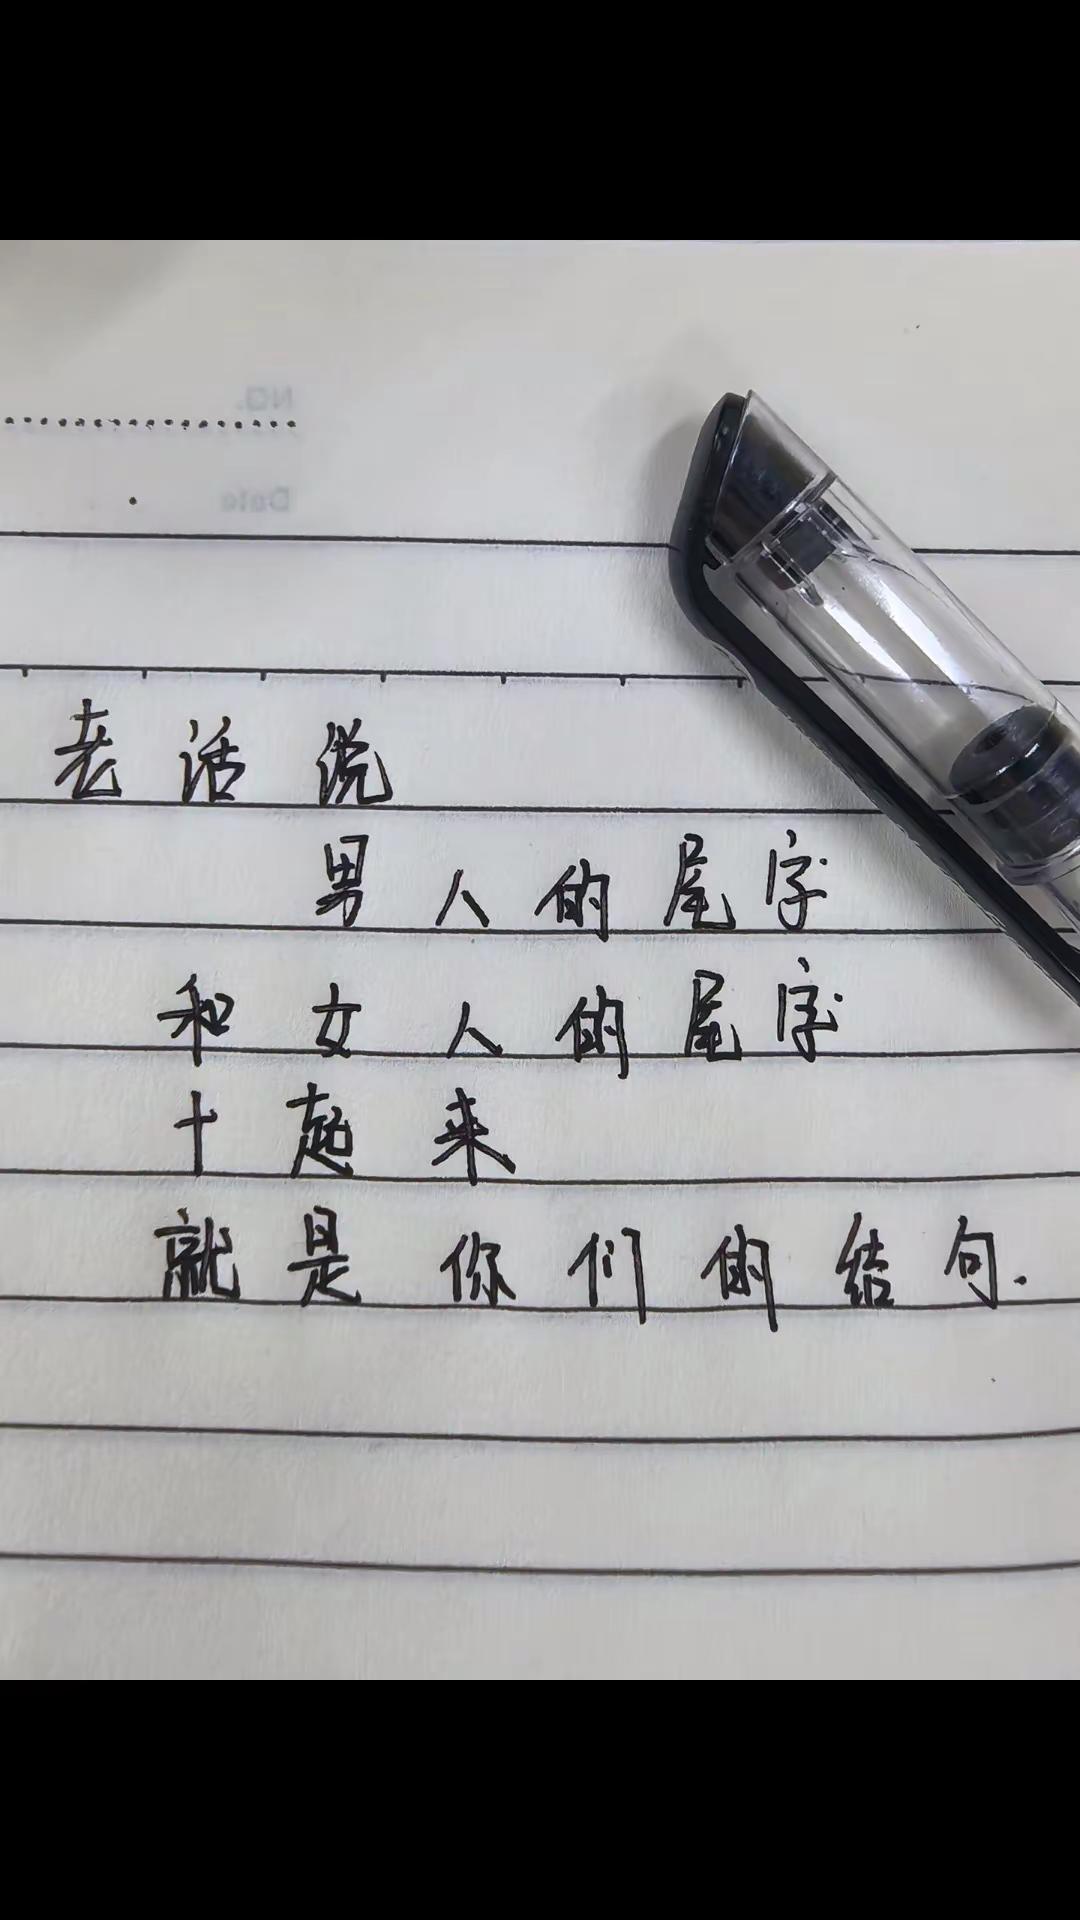 NO.
Date
老话说
男人的尾字
和女人的尾字
十起来
就是你们的结句.